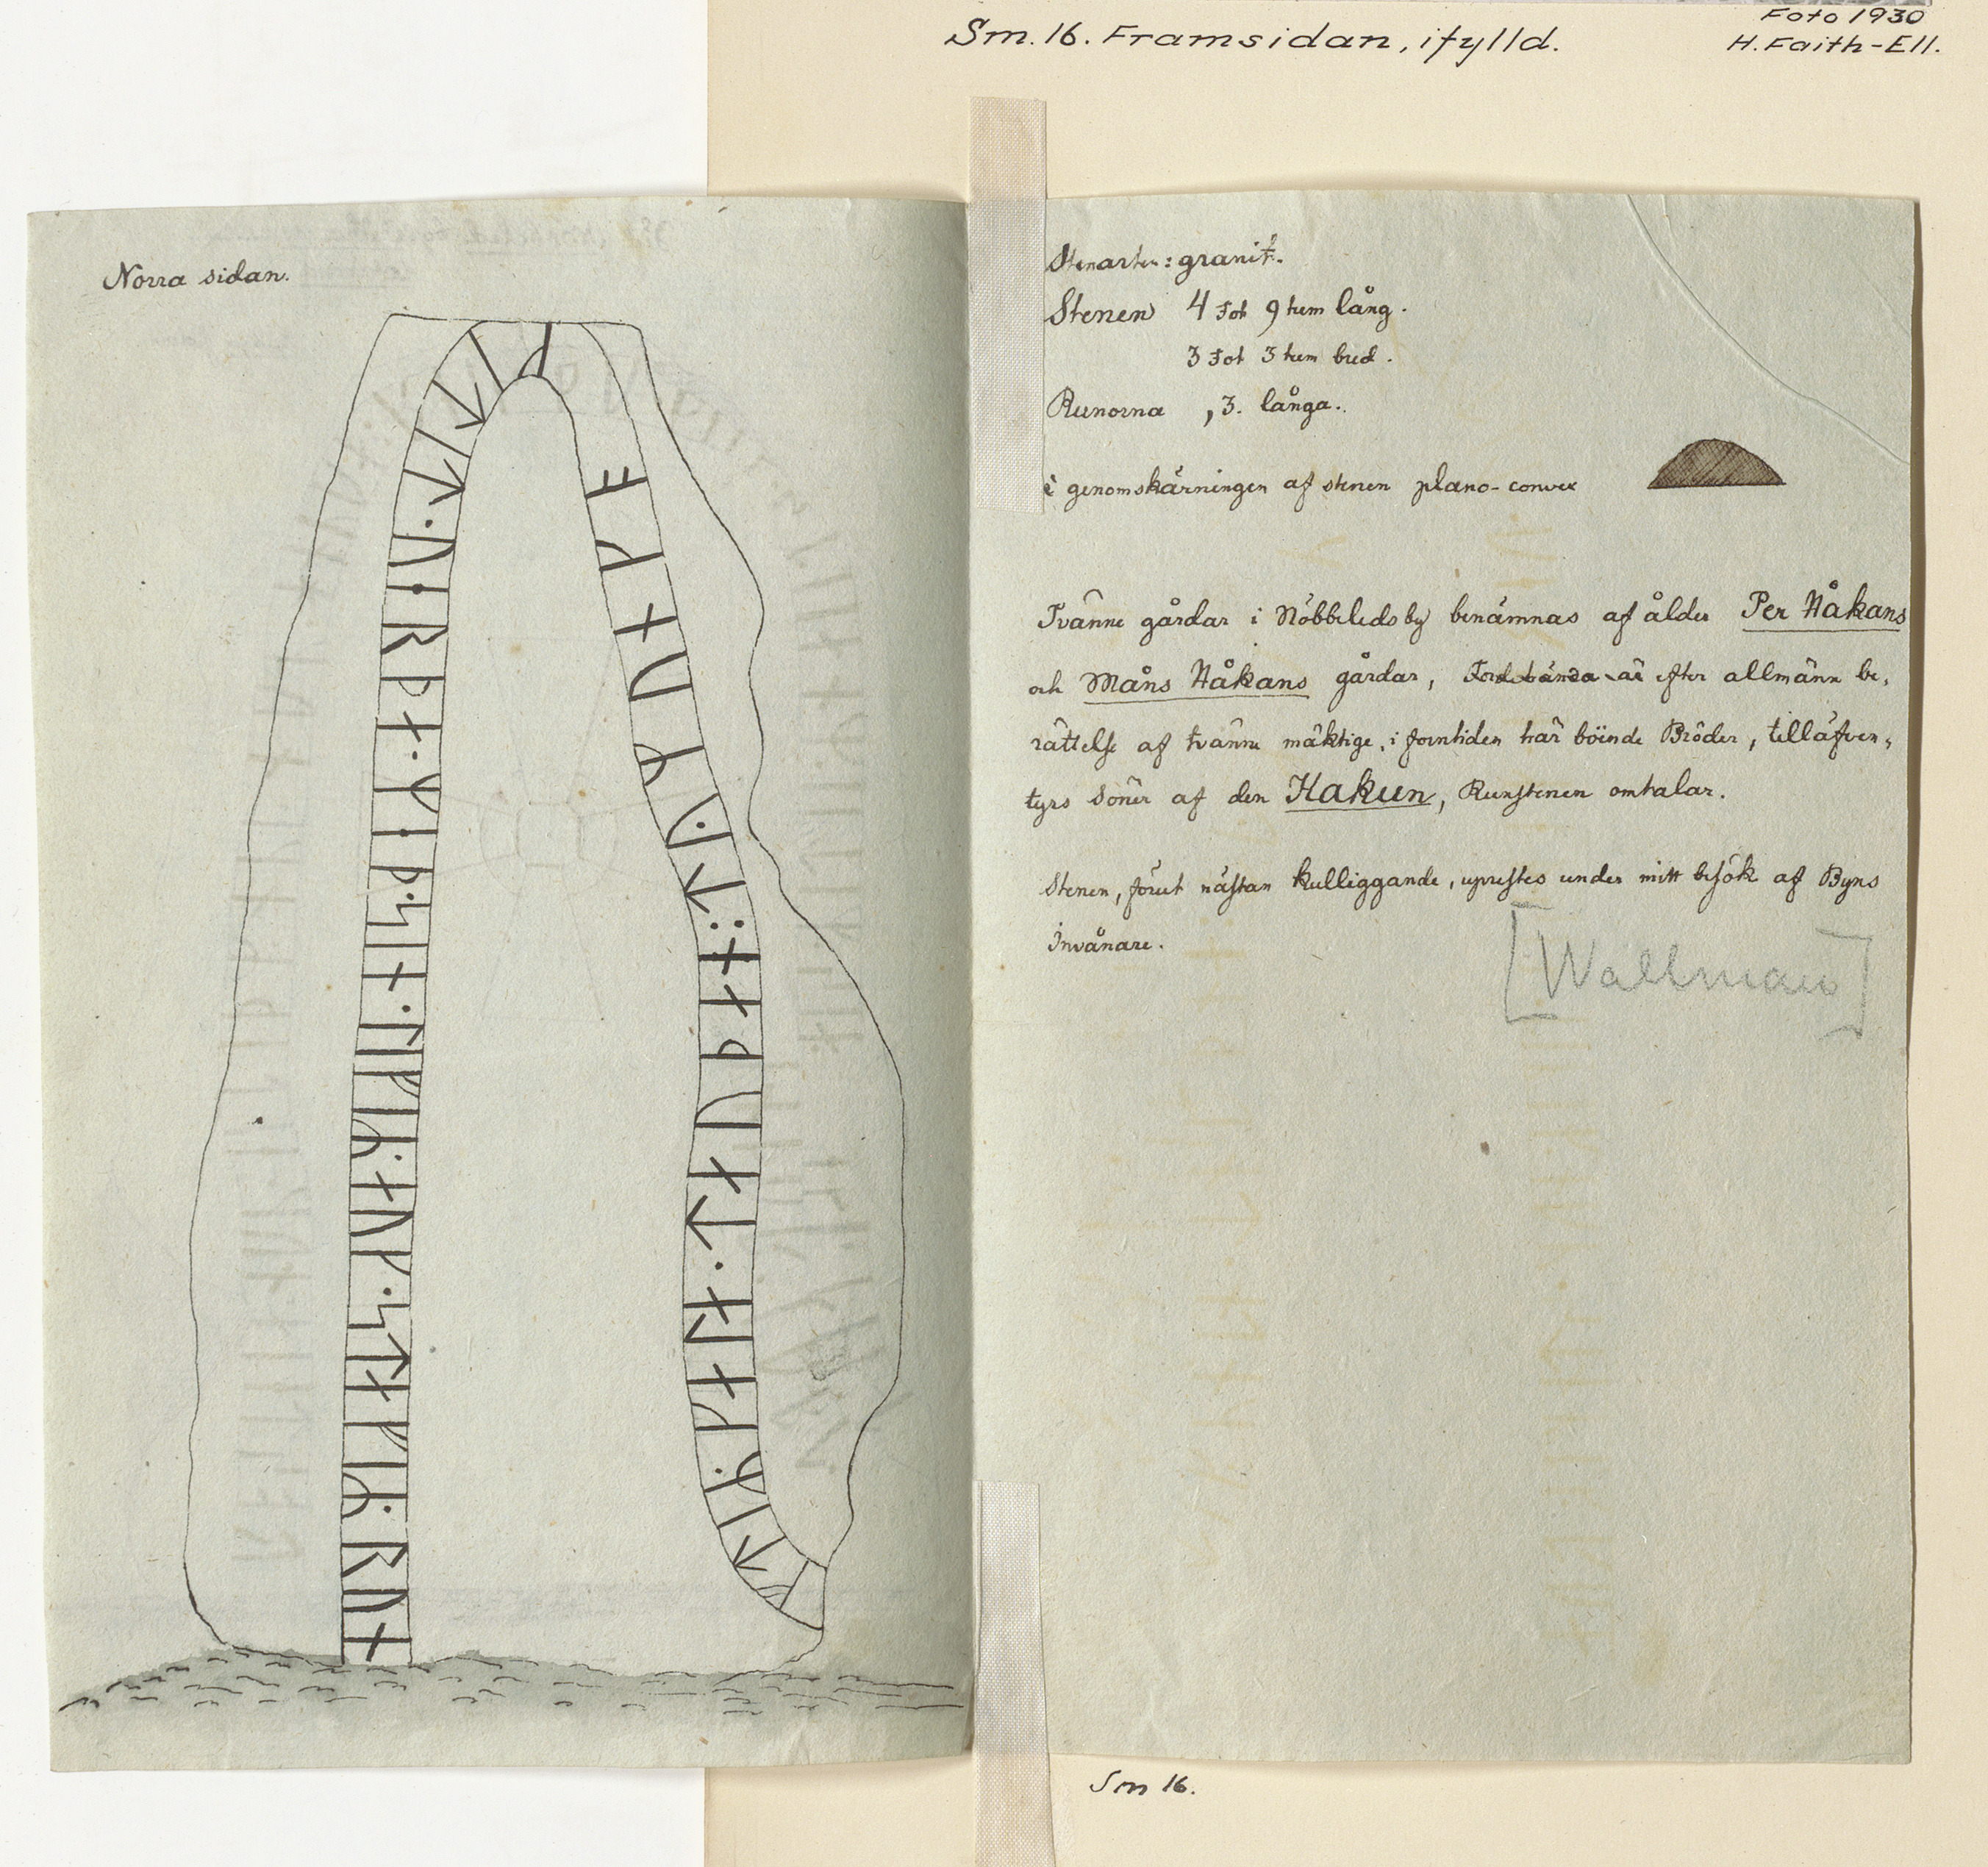 Sm. 16. Framsidan, ifylld.
Foto 1930
H. Faith-Ell.
Norra sidan.
ᛁᛏ · ᚢᛂᚱᚦᛅ · ᛘᛂᚦ · ᛋᛁᚾ · ᛚᛁᚠᛁᚱ · ᛅᚢᚴ · ᛋᛏᛅᚠᛁᚱ · ᚱᚢᚾ
Stenarten: granit.
Stenen 4 fot 9 tum lång.
3 fot 3 tum bred.
Runorna , 3. långa.
i genomskärningen af stenen plano-convex
Tvänne gårdar i Nöbbeledsby benämnas af ålder Per Håkans
och Måns Håkans gårdar, efter allmänn be,
rättelse af tvänne mäktige, i forntiden här boende Bröder, tilläfven,
tyrs söner af den Hakun, Runstenen omtalar.
Stenen, förut nästan kulliggande, uprestes under mitt besök af Byns
Invånare.
[Wallman]
Sm 16.